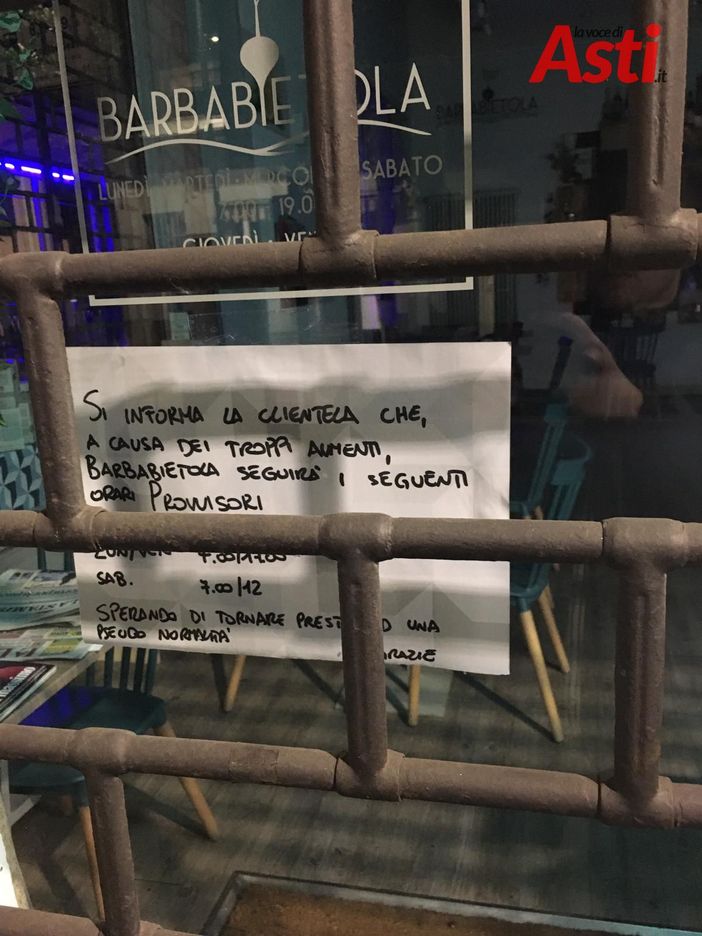 la voce di
Asti.it
BARBABIETOLA
BARBABIETOLA
LUNEDÌ MARTEDÌ • SABATO
7.00 - 19.0
GIOVEDÌ •
SI INFORMA LA CLIENTELA CHE,
A CAUSA DEI TROPPI AUMENTI,
BARBABIETOLA SEGUIRA' I SEGUENTI
ORARI PROVVISORI
LUN/VEN 7.00/17.00
SAB. 7.00/12
SPERANDO DI TORNARE PREST AD UNA
PSEUDO NORMALITA'
GRAZIE